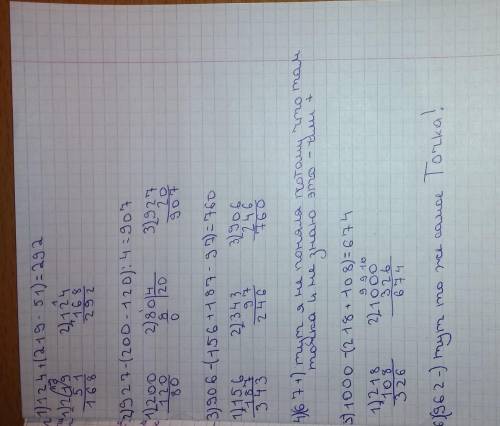 1) 124+(219-51)=292
1) 219 2) 124
51 168
168 292
2) 927-(200-120):4=907
1) 200 2) 80 4 3) 927
120 8 20 20
80 0 907
3) 906-(156+187-97)=760
1) 156 2) 343 3) 906
187 97 246
343 246 760
4) 67+) тут я не поняла потому что там
точка и не знаю это - или +
5) 1000-(218+108)=674
1) 218 2) 1000
108 326
326 674
6) (962-) тут то же самое Точка!